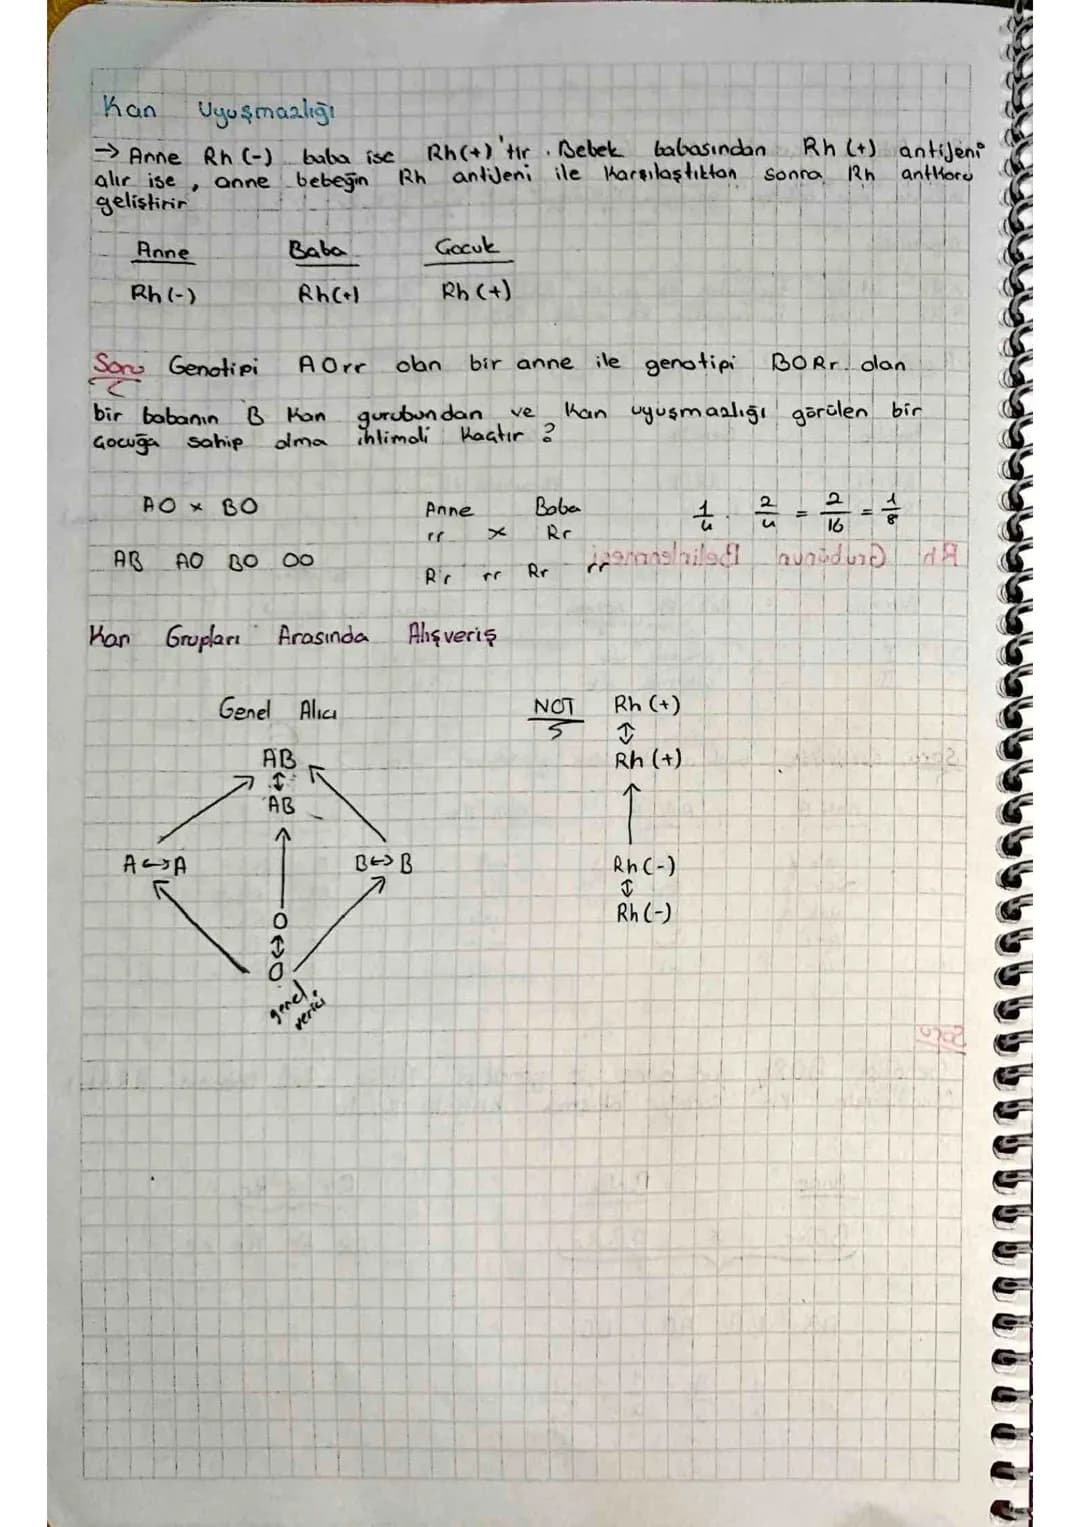 Kan Uyuşmazlığı
→ Anne Rh (-) baba ise Rh(+)'tir. Bebek babasından Rh (+) antijeni
alır ise, anne bebeğin Rh antijeni ile karşılaştıktan sonra Rh antikoru
geliştirir
Anne Baba Çocuk
Rh (-) Rh(+) Rh (+)
Soru Genotipi AOrr olan bir anne ile genotipi BORr olan
bir babanın B kan gurubundan ve kan uyuşmazlığı görülen bir
Çocuğa sahip olma ihtimali kaçtır ?
AO x BO Anne Baba 1/4 . 2/4 = 2/16 = 1/8
rr x Rr
Rh Grubunun Belirlenmesi
AB AO BO OO Rr rr Rr rr
Kan Grupları Arasında Alışveriş
Genel Alıcı NOT Rh (+)
↕
AB Rh (+)
↕
AB ↑
A↔A B↔B Rh (-)
↕
O Rh (-)
↕
O
genel verici
Soru
Soru